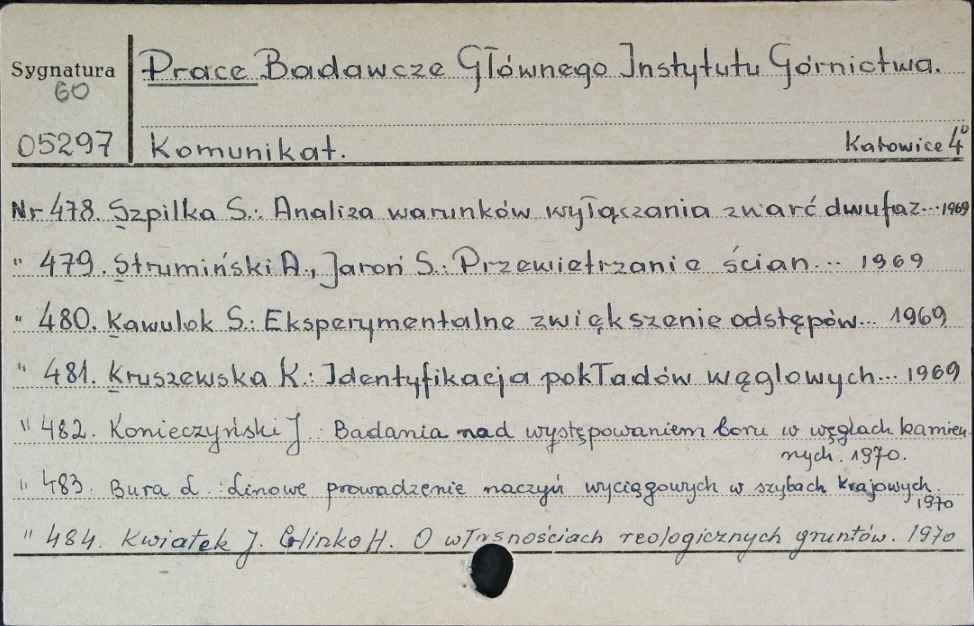 Sygnatura
60
05297
Prace Badawcze Głównego Instytutu Górnictwa.
Komunikat. Katowice 4°
Nr 478. Szpilka S.: Analiza warunków wyłączania zwarć dwufaz... 1969
" 479. Strumiński A., Jaroń S.: Przewietrzanie ścian... 1969
" 480. Kawulok S.: Eksperymentalne zwiększenie odstępów... 1969
" 481. Kruszewska K.: Identyfikacja pokładów węglowych... 1969
" 482. Konieczyński J. Badania nad występowaniem boru w węglach kamien-
nych. 1970.
" 483. Bura L. : Linowe prowadzenie naczyń wyciągowych w szybach krajowych.
1970
" 484. Kwiatek J. Glinko H. O własnościach reologicznych gruntów. 1970